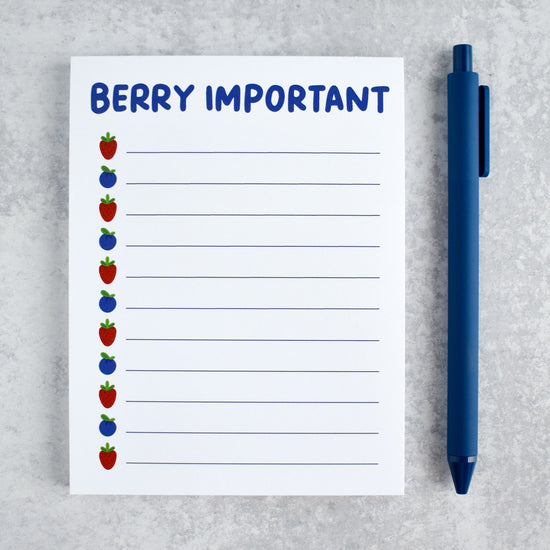 BERRY IMPORTANT